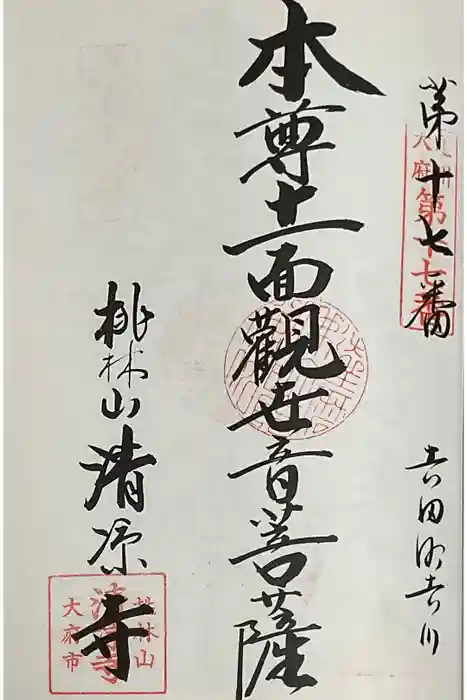 第十七番
大府
第十七番
吉田
本尊十一面觀世音菩薩
桃林山
清涼寺
桃林山
清涼寺
大府市